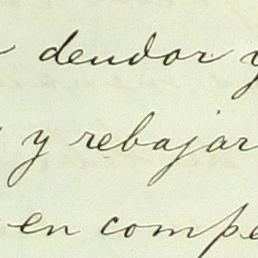 deudor y
y rebajar
en compe